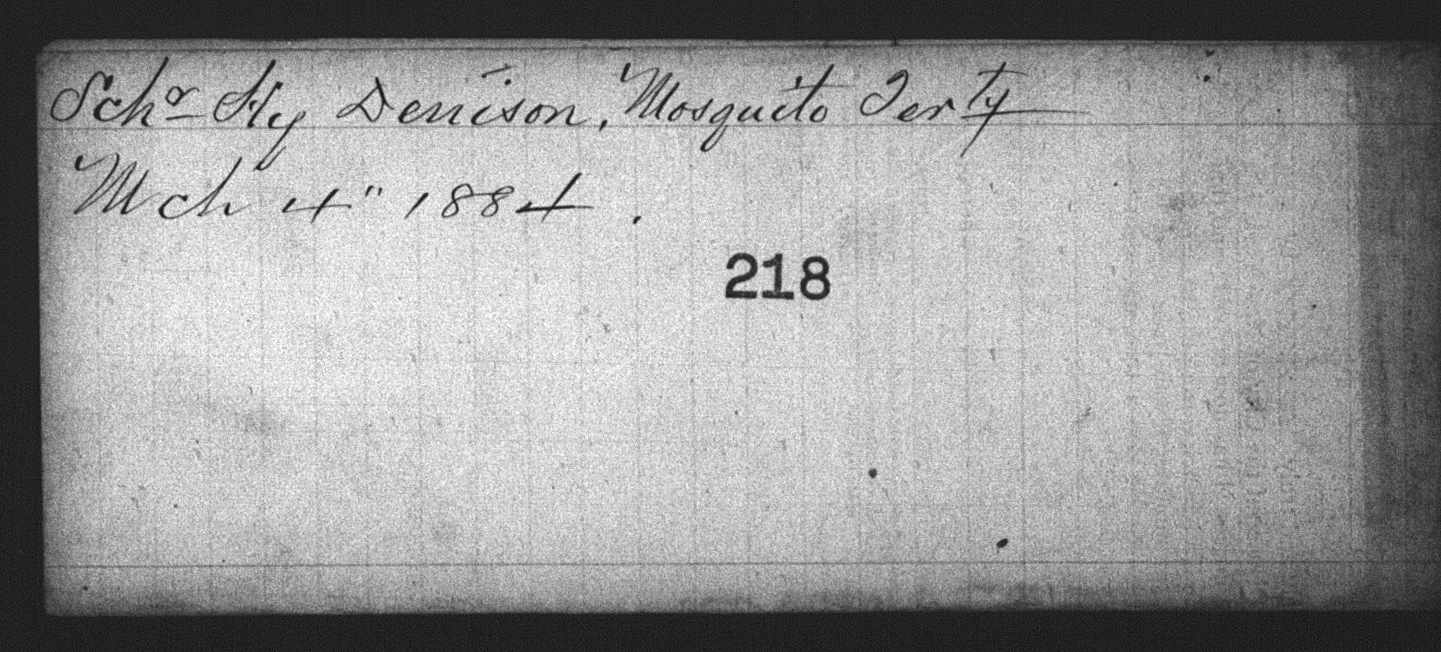 Schr Hy Denison, Mosquito Terty
Mch 4" 1884.
218